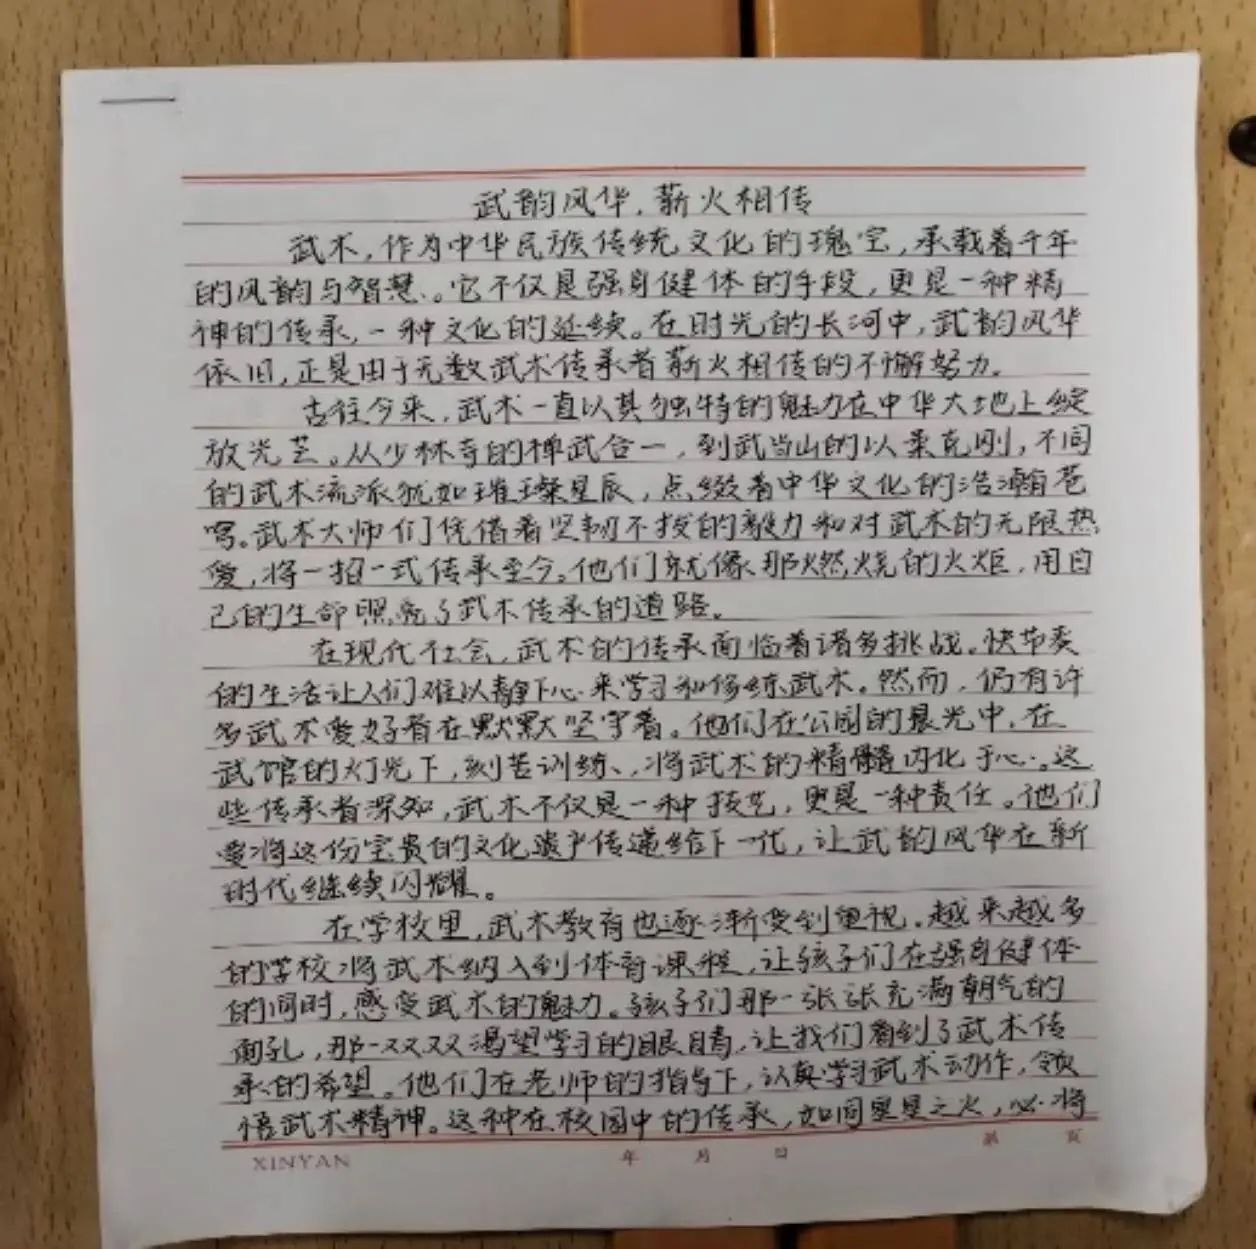 武韵风华,薪火相传
武术,作为中华民族传统文化的瑰宝,承载着千年
的风韵与智慧。它不仅是强身健体的手段,更是一种精
神的传承,一种文化的延续。在时光的长河中,武韵风华
依旧,正是由于无数武术传承者薪火相传的不懈努力。
古往今来,武术一直以其独特的魅力在中华大地上绽
放光芒。从少林寺的禅武合一,到武当山的以柔克刚,不同
的武术流派犹如璀璨星辰,点缀着中华文化的浩瀚苍
穹。武术大师们凭借着坚韧不拔的毅力和对武术的无限热
爱,将一招一式传承至今。他们就像那燃烧的火炬,用自
己的生命照亮了武术传承的道路。
在现代社会,武术的传承面临着诸多挑战。快节奏
的生活让人们难以静下心来学习和修练武术。然而,仍有许
多武术爱好者在默默坚守着。他们在公园的晨光中,在
武馆的灯光下,刻苦训练,将武术的精髓内化于心。这
些传承者深知,武术不仅是一种技艺,更是一种责任。他们
要将这份宝贵的文化遗产传递给下一代,让武韵风华在新
时代继续闪耀。
在学校里,武术教育也逐渐受到重视。越来越多
的学校将武术纳入到体育课程,让孩子们在强身健体
的同时,感受武术的魅力。孩子们那一张张充满朝气的
面孔,那一双双渴望学习的眼睛,让我们看到了武术传
承的希望。他们在老师的指导下,认真学习武术动作,领
悟武术精神。这种在校园中的传承,如同星星之火,必将
XINYAN 年 月 日 第 页